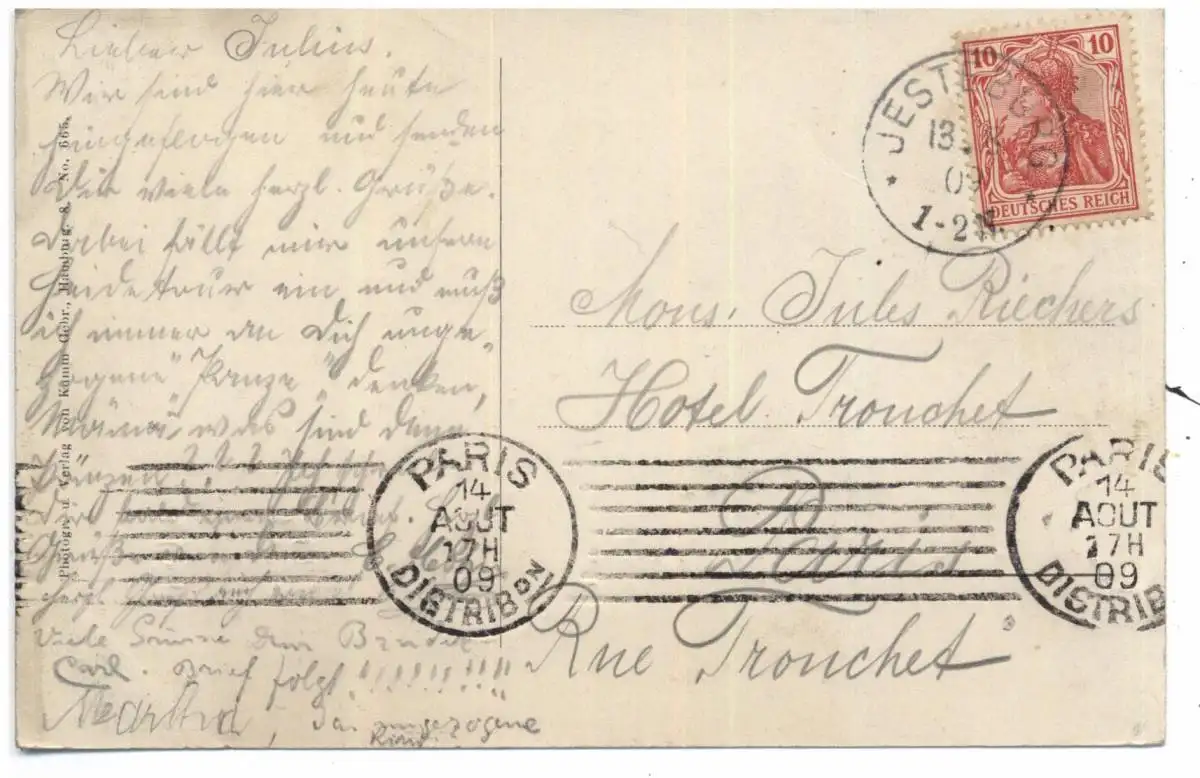 Lieber Julius.
Wir sind hier heute
hingeflogen und senden
Dir viele herzl. Grüße.
Dabei fällt mir unsere
Heidetour ein und muß
ich immer an Dich unge-
zogene "Panze" denken,
Mama was sind denn
Panzen ? ? ?
Gruß
Viele Grüsse Dein Bruder
Carl. Brief folgt !!!!!!!!!
Martha, das ungezogene
Kind.
Photogr. u. Verlag von Kumm Gebr., Hamburg. 8. No. 665.
10 10
DEUTSCHES REICH
JESTEBURG
13.
09
1-2N.
Mons. Jules Riechers
Hotel Tronchet
Paris
Rue Tronchet
PARIS
14
AOUT
17H
09
DISTRIBON
PARIS
14
AOUT
17H
09
DISTRIB